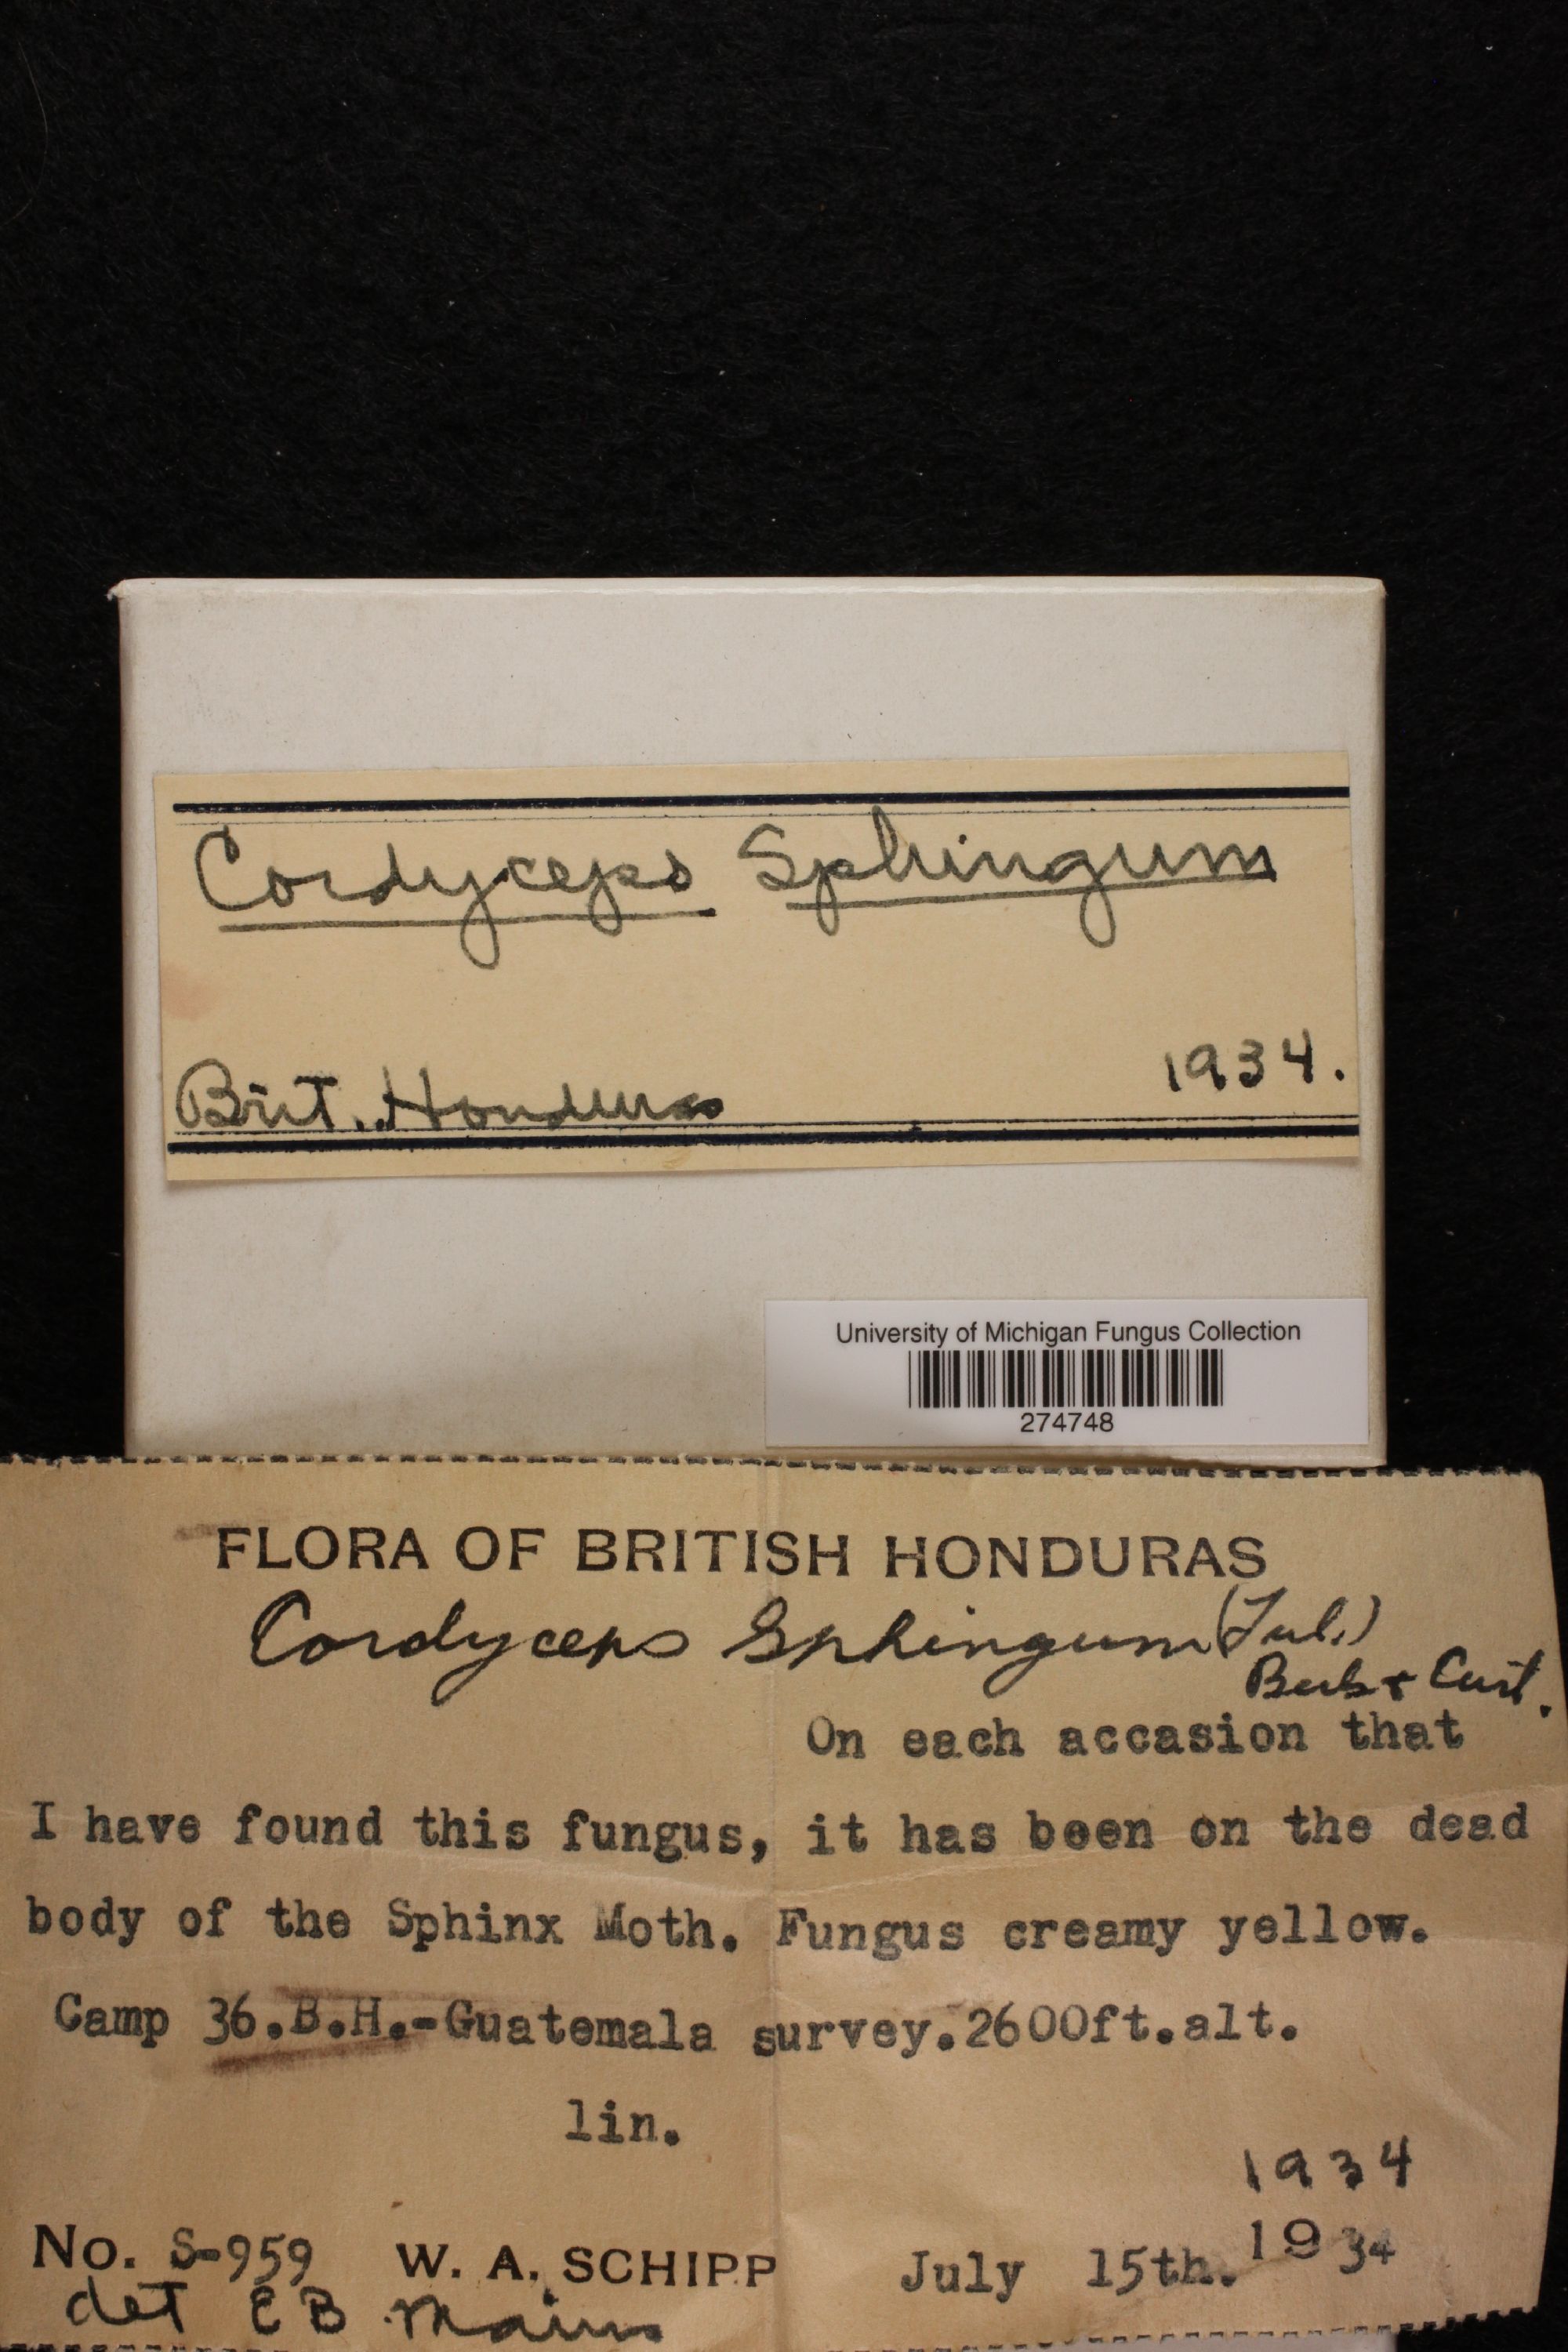 Cordyceps Sphingum
Brit. Honduras 1934.
University of Michigan Fungus Collection
274748
FLORA OF BRITISH HONDURAS
Cordyceps Sphingum (Tul.)
Berk + Curt.
On each accasion that
I have found this fungus, it has been on the dead
body of the Sphinx Moth. Fungus creamy yellow.
Camp 36.B.H.-Guatemala survey.2600ft.alt.
lin.
1934
No. S-959 W. A. SCHIPP July 15th. 1934
det E B Mains